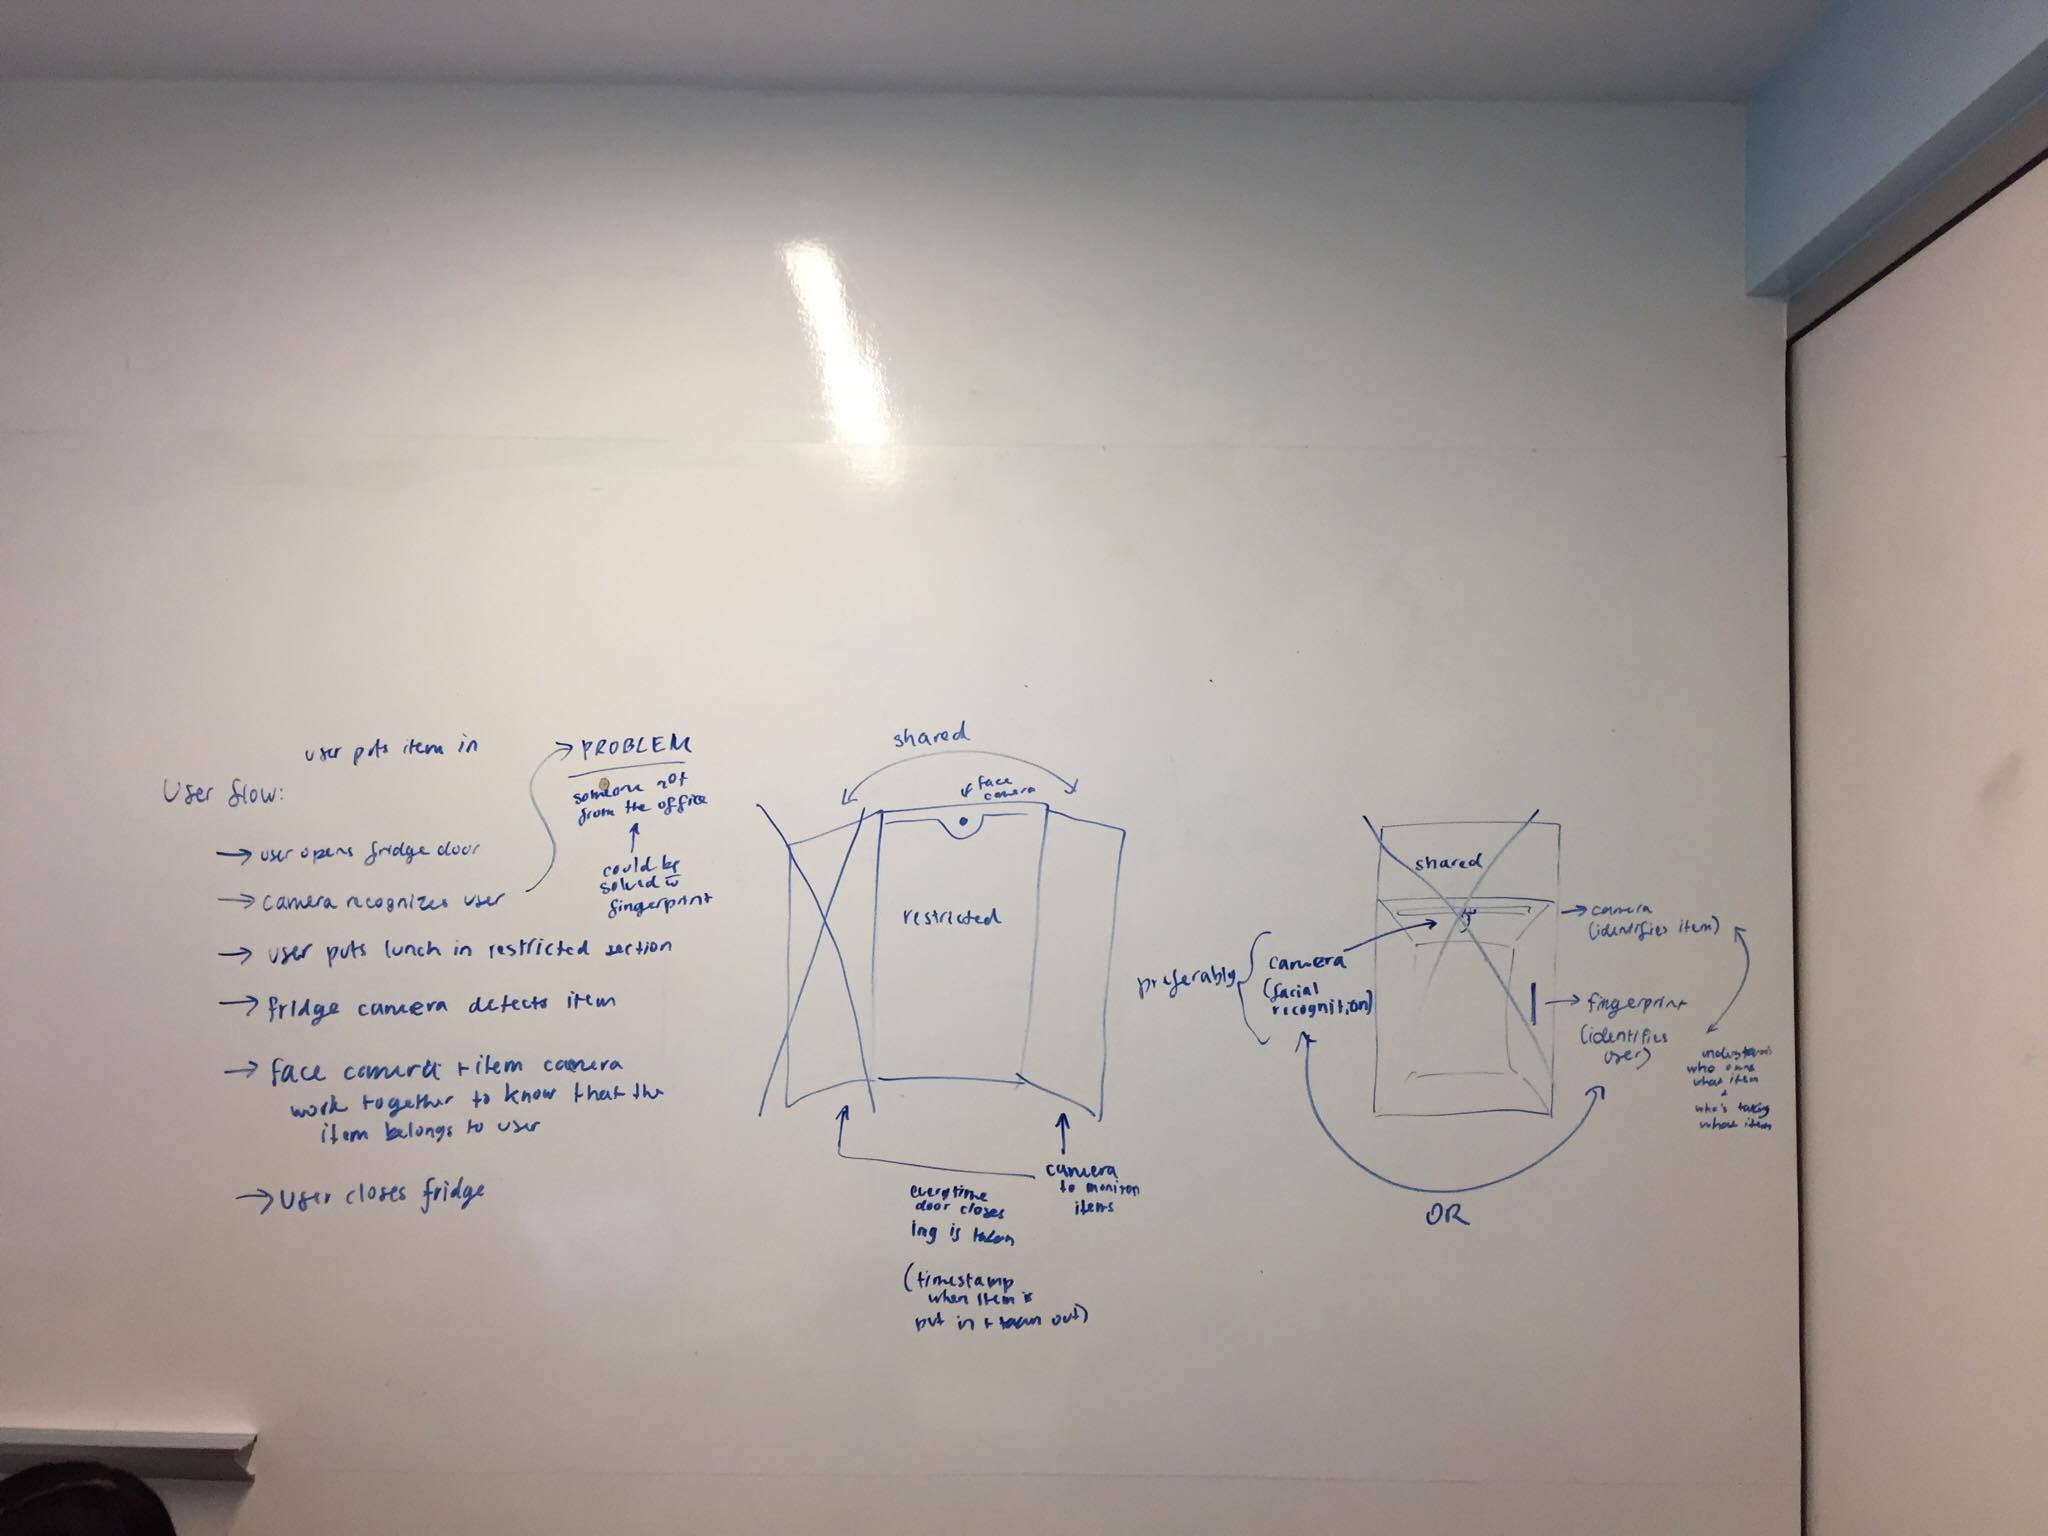 user puts item in
User flow:
→ user opens fridge door
→ camera recognizes user
→ user puts lunch in restricted section
→ fridge camera detects item
→ face camera + item camera
work together to know that the
item belongs to user
→ User closes fridge
→ PROBLEM
someone not
from the office
could be
solved w
fingerprint
shared
face
camera
restricted
camera
to monitor
items
everytime
door closes
img is taken
(timestamp
when item is
put in + taken out)
shared
preferably
camera
(facial
recognition)
→ camera
(identifies item)
→ fingerprint
(identifies
user)
understands
who owns
what item
+
who's taking
whose item
OR